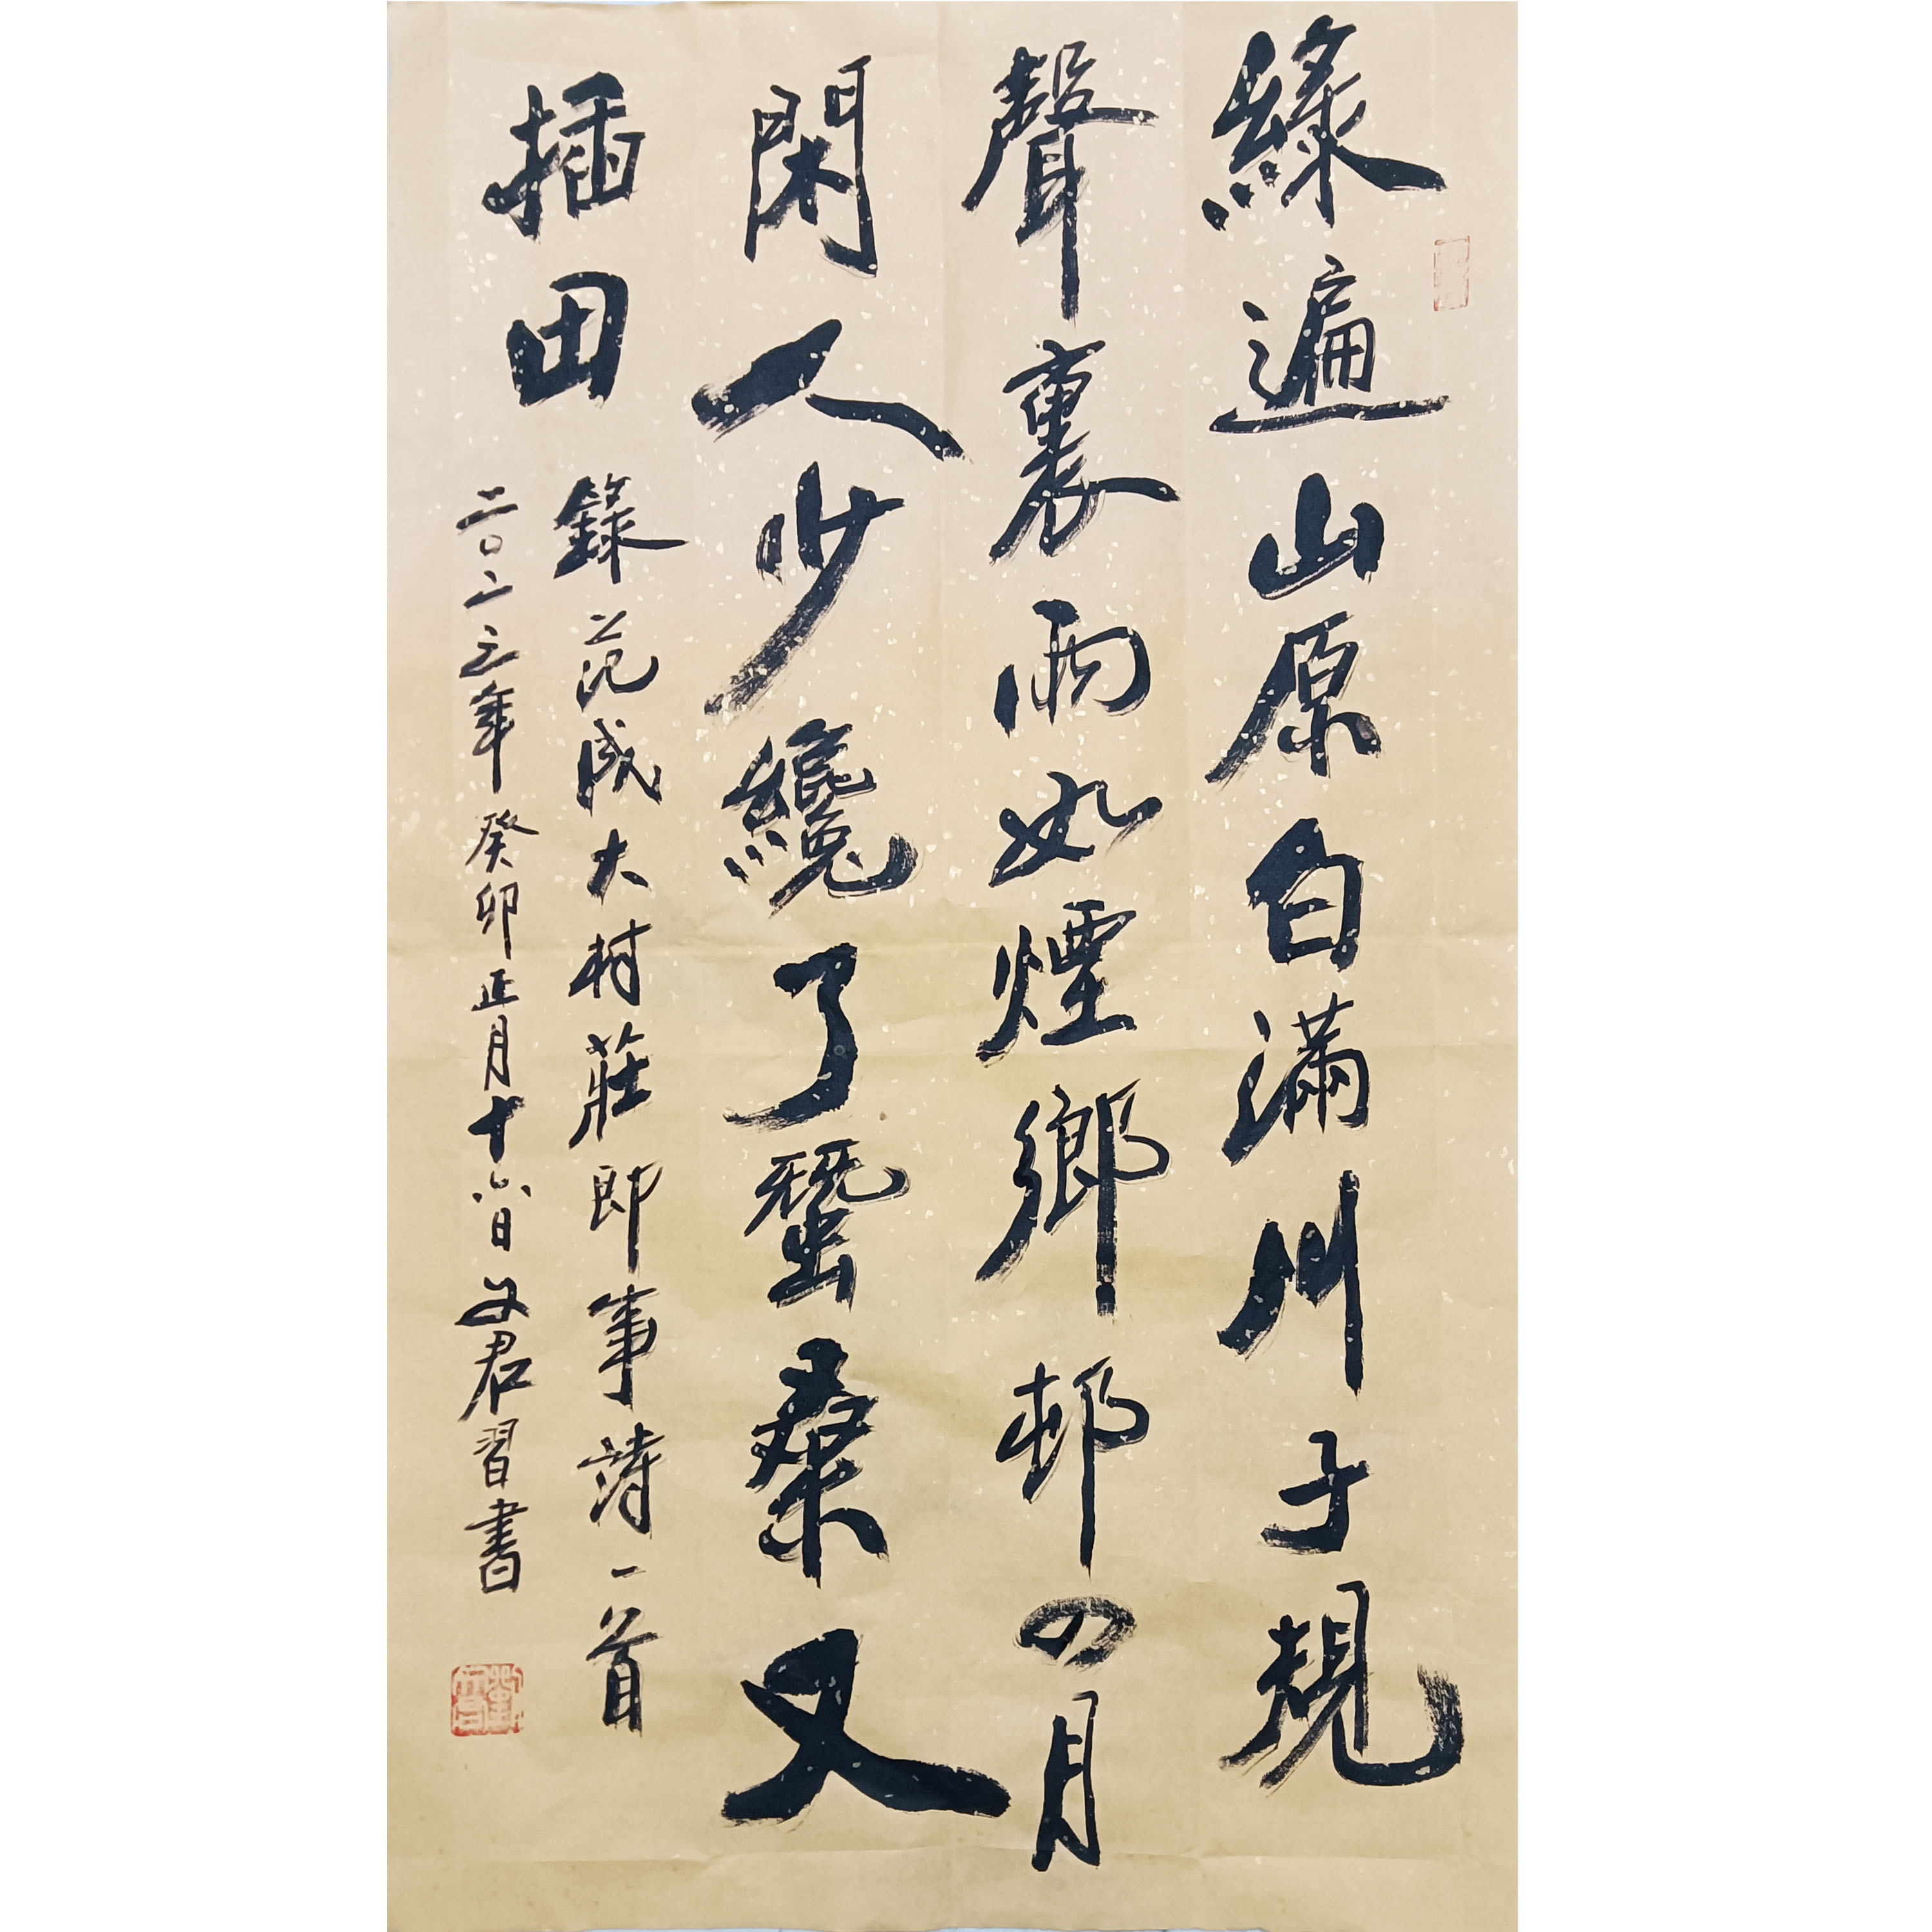 綠遍山原白滿川子規
聲裏雨如煙鄉邨四月
閑人少纔了蠶桑又
插田
錄范成大村莊即事詩一首
二〇二三年癸卯正月十六日文君習書